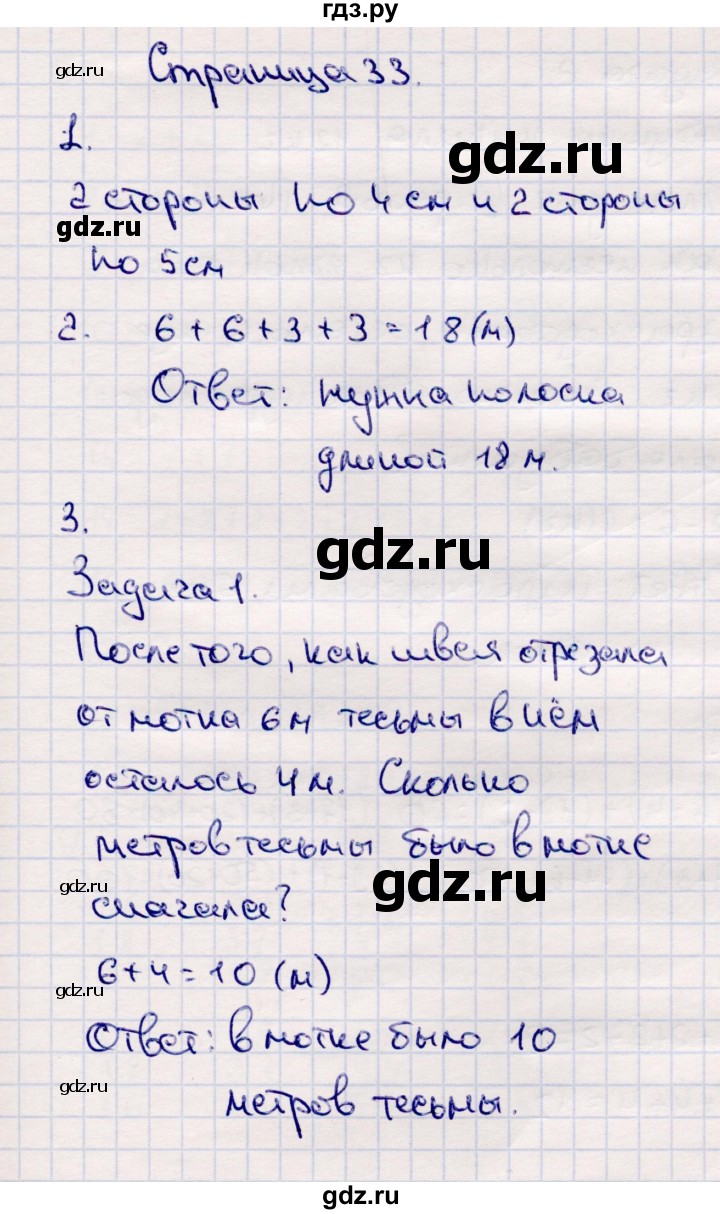 гдз.ру
Страница 33.
gdz.ru
1.
gdz.ru
2 стороны по 4 см и 2 стороны
gdz.ru
по 5 см
2. 6 + 6 + 3 + 3 = 18 (м)
Ответ: нужна полоска
длиной 18 м.
3.
gdz.ru
Задача 1.
После того, как швея отрезала
от мотка 6 м тесьмы в нём
осталось 4 м. Сколько
метров тесьмы было в мотке
gdz.ru
gdz.ru
сначала?
6 + 4 = 10 (м)
gdz.ru
Ответ: в мотке было 10
gdz.ru
метров тесьмы.
gdz.ru